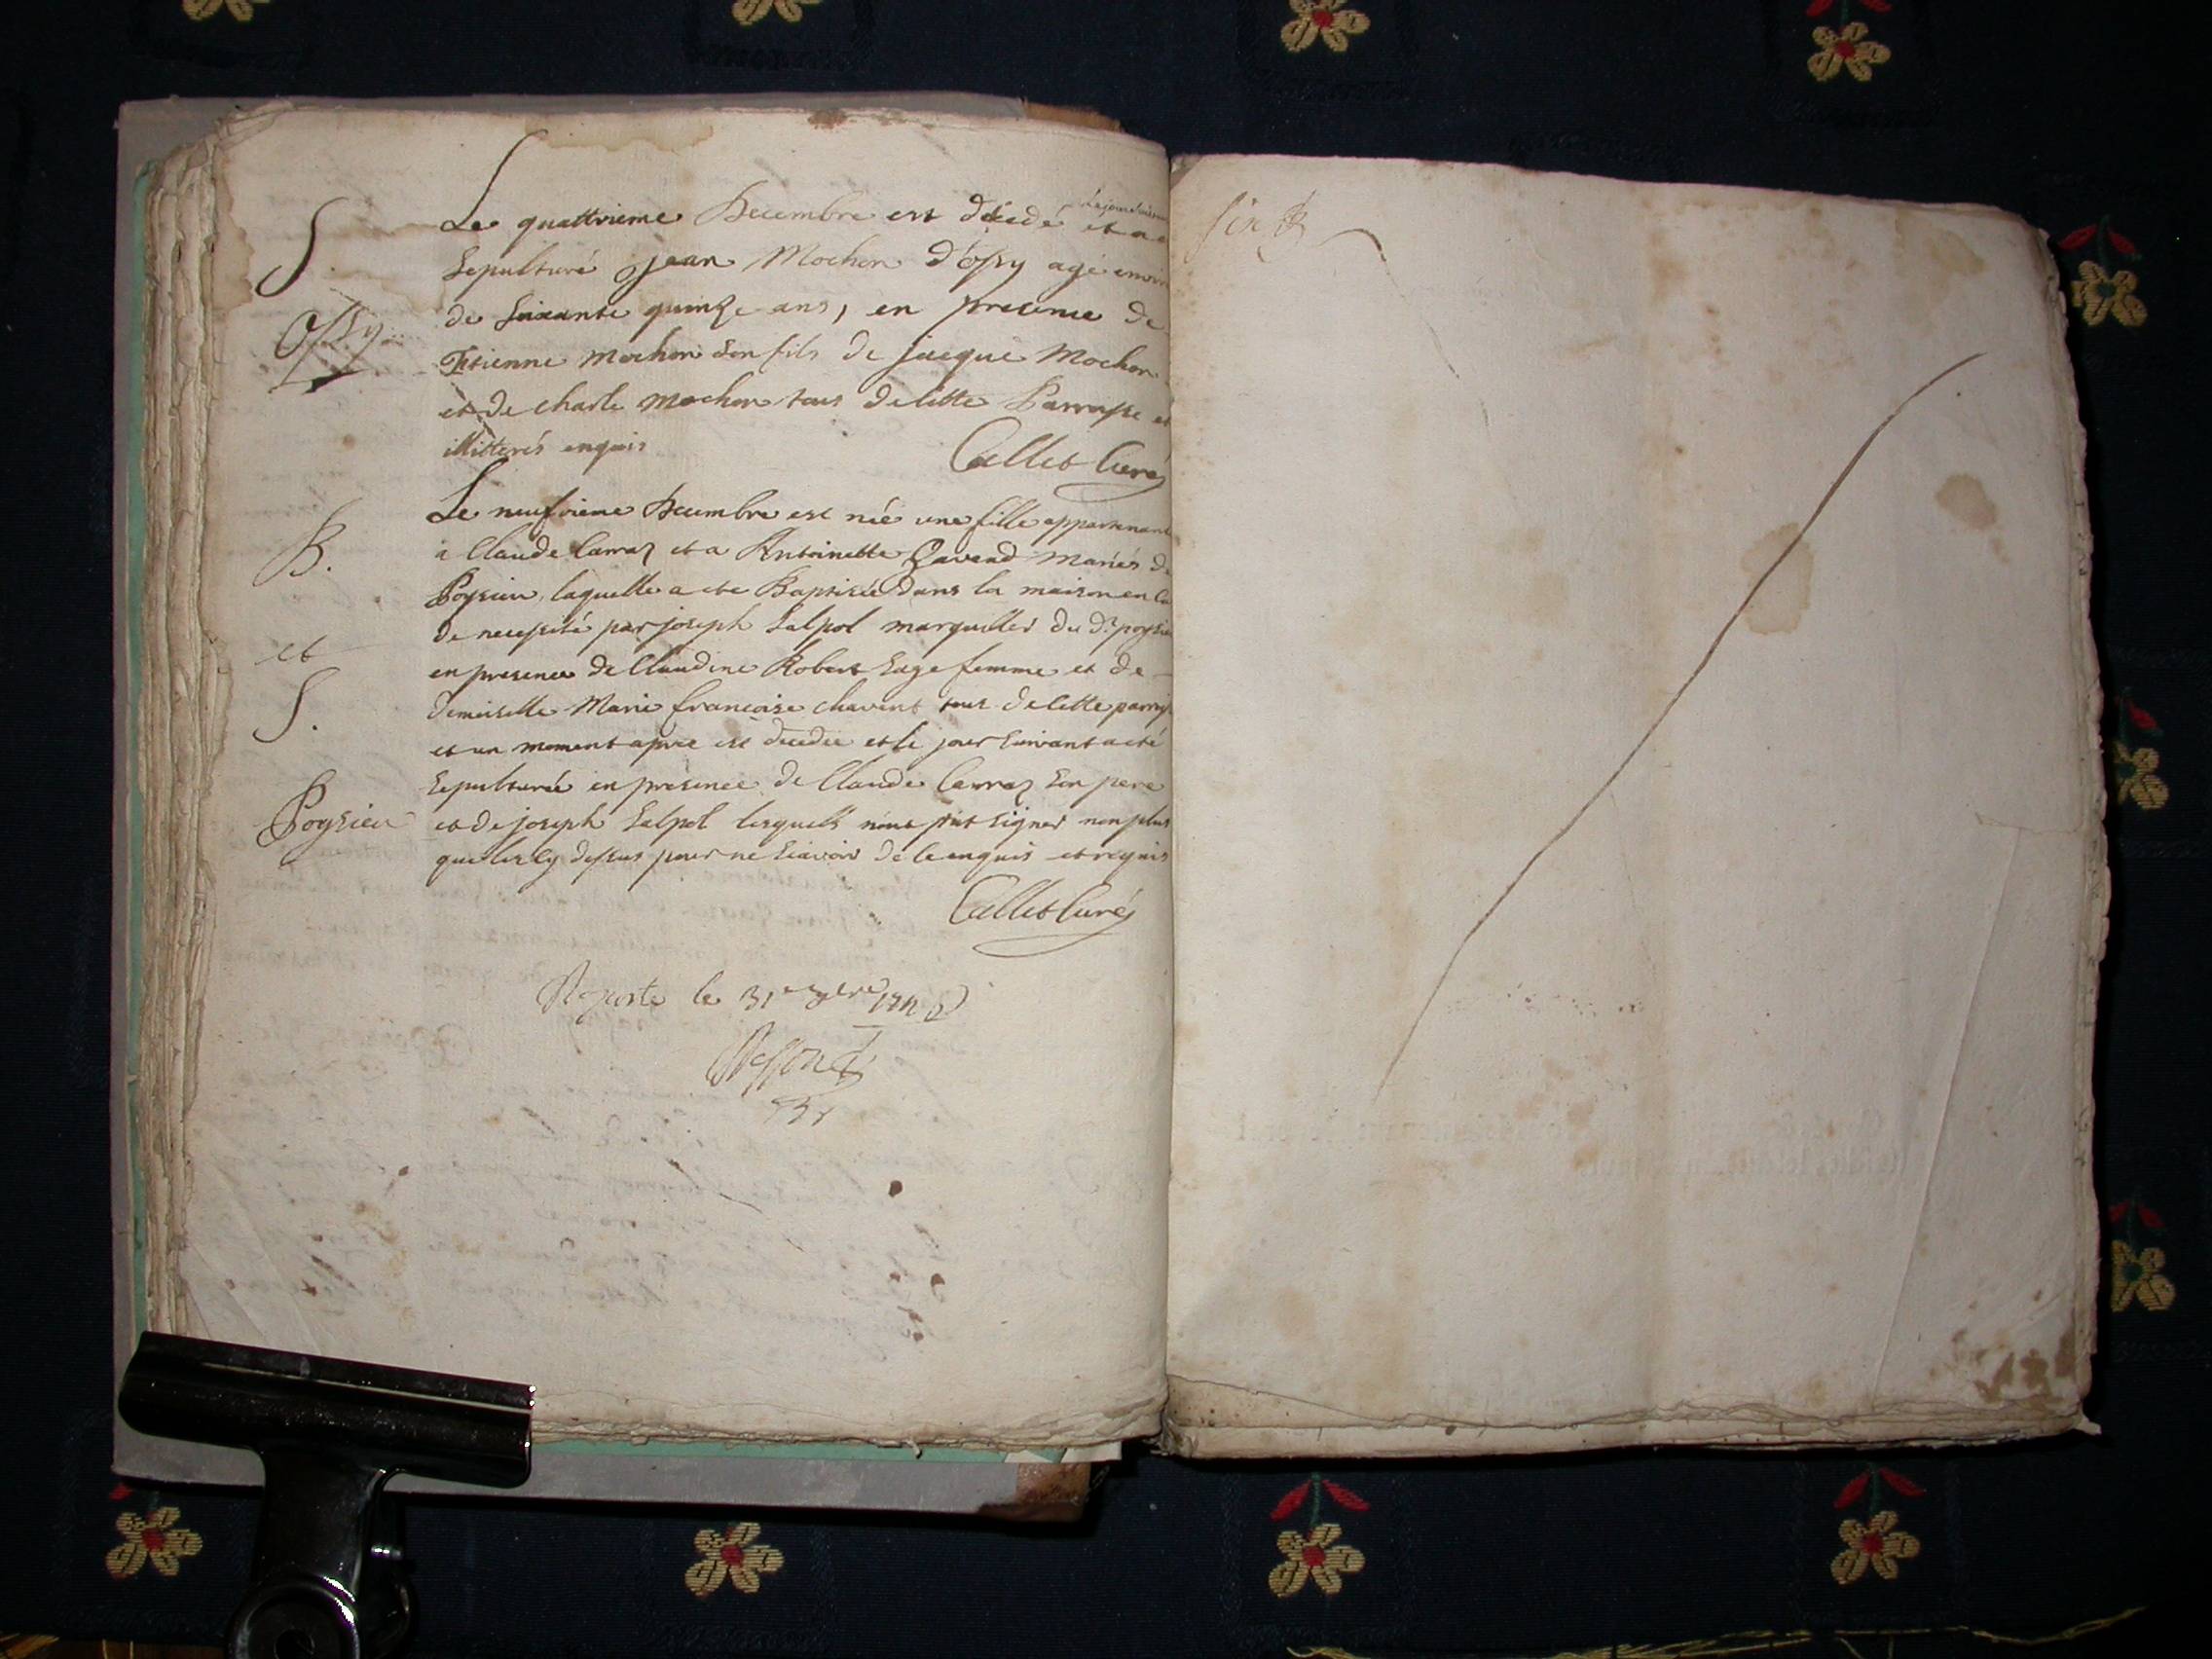 S.
Le quattrieme Decembre est décedé et a
Sepulturé jean Mochon d'ossy agé environ
Ossy
de soixante quinze ans, en presence de
Etienne Mochon son fils de jacque Mochon
et de charle Mochon tous de cette Parroisse et
illitterés enquis
Callet Curé
B.
et
S.
Poysieu
Le neufvieme Decembre est née une fille appartenant
a Claude Carraz et a Antoinette Ravend Mariés de
Poysieu, laquelle a ete Baptisée dans la maison en cas
de necessité par joseph Salpol marguiller du dt poysieu
en presence de Claudine Robert sage femme et de
demoiselle Marie francoise chavent tous de cette parroisse
et un moment apres est decedée et le jour suivant a eté
sepulturée en presence de Claude Carraz son pere
et de joseph Salpol lesquels n'ont put signer non plus
que les cy dessus pour ne sçavoir de ce enquis et requis
Callet Curé
le 31e